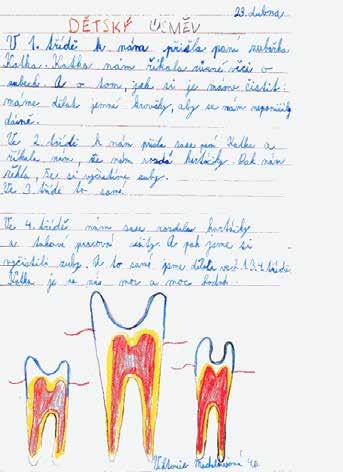 23. dubna
DĚTSKÝ ÚSMĚV
V 1. třídě k nám přišla paní zubařka
Katka. Katka nám říkala různé věci o
zubech. A o tom, jak si je máme čistit:
máme dělat jemné kroužky, aby se nám neponičily
dásně.
Ve 2. třídě k nám přišla zase paní Katka a
říkala nám, že nám rozdá kartáčky. Pak nám
řekla, že si vyčistíme zuby.
Ve 3. třídě to samé.
Ve 4. třídě nám zase rozdala kartáčky
a takové pracovní sešity. A pak jsme si
vyčistili zuby. A to samé jsme dělali ve 2. 1. 3. 4. třídě.
Katka je na nás moc a moc hodná.
Viktorie 4.B